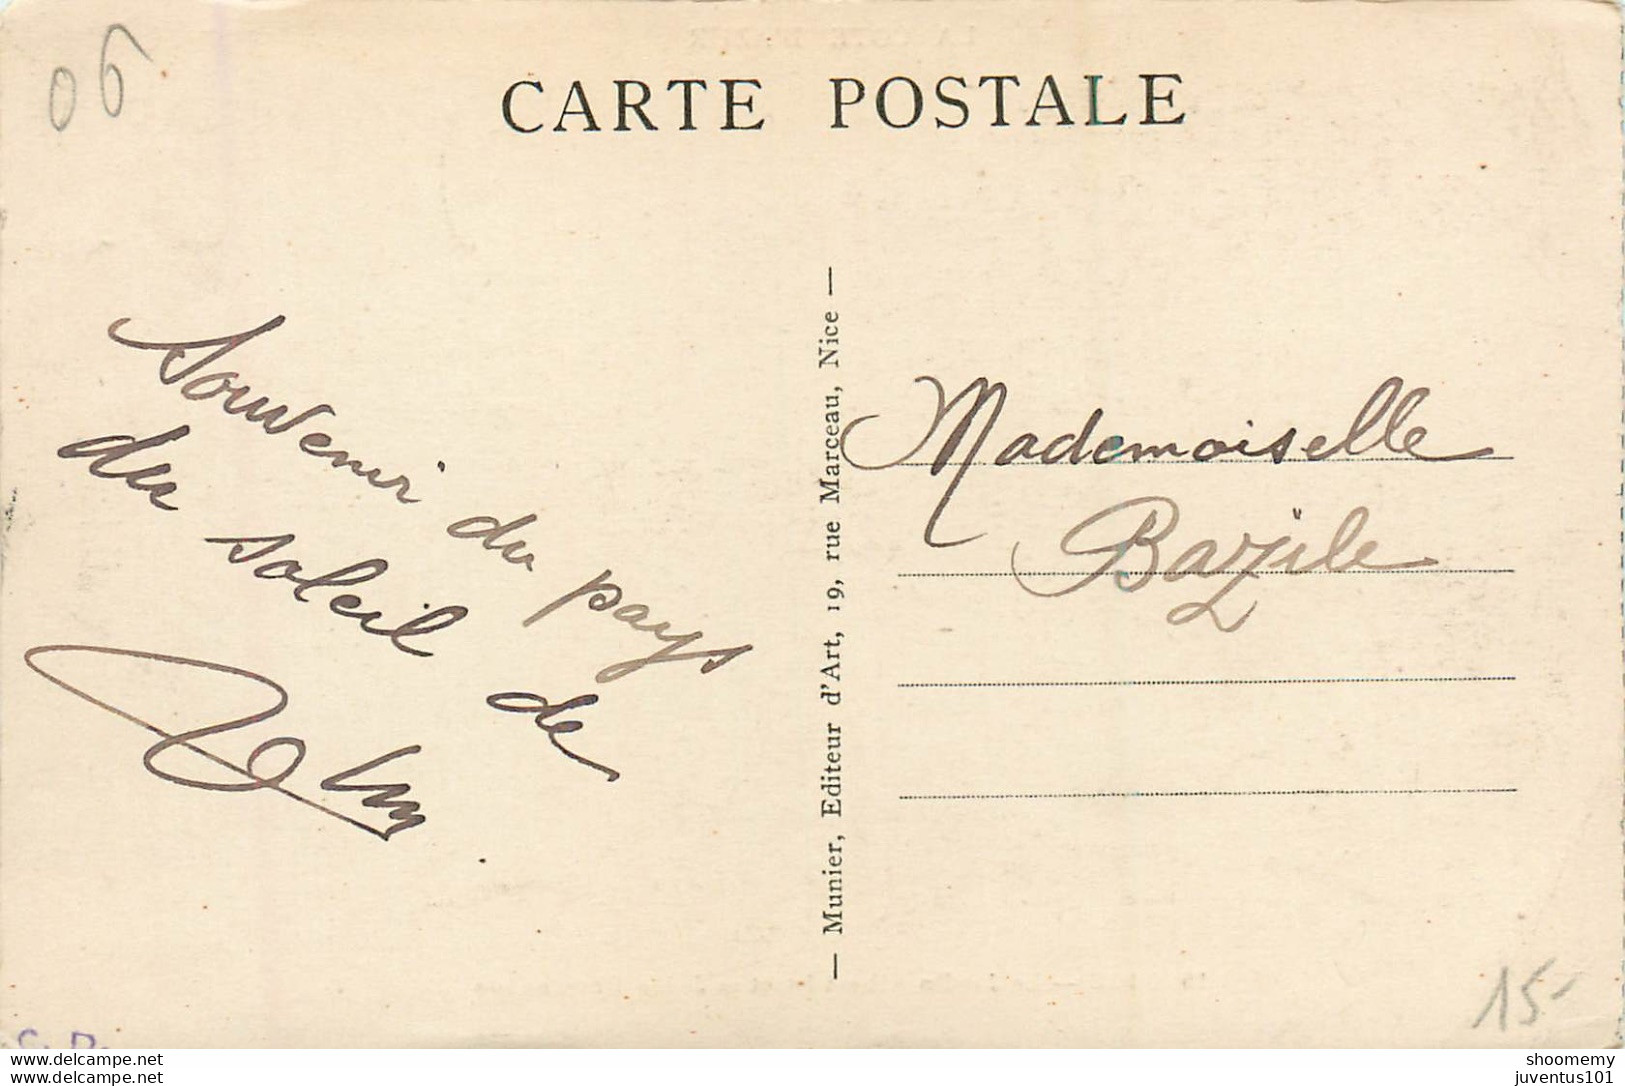 06
CARTE POSTALE
Souvenir du pays
du soleil de
— Munier, Editeur d'Art, 19, rue Marceau, Nice —
Mademoiselle
Bazile
15-
www.delcampe.net
shoomemy
www.delcampe.net
juventus101